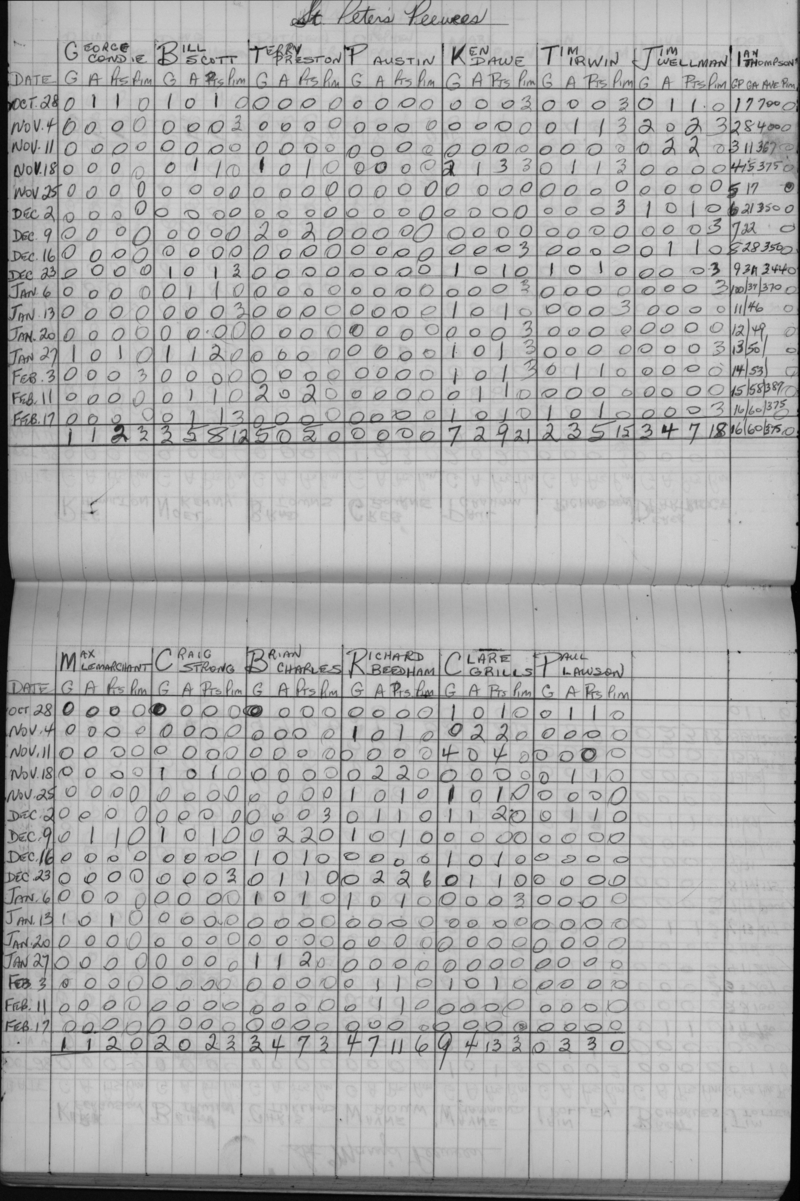 St Peters Peewees
GEORGE CONDIE BILL SCOTT TERRY PRESTON P AUSTIN KEN DAWE TIM IRWIN JIM WELLMAN IAN THOMPSON
DATE G A Pts Pim G A Pts Pim G A Pts Pim G A Pts Pim G A Pts Pim G A Pts Pim G A Pts Pim GP GA AVE Pim
OCT. 28 0 1 1 0 1 0 1 0 0 0 0 0 0 0 0 0 0 0 0 3 0 0 0 3 0 1 1 0 1 7 700 0
NOV. 4 0 0 0 0 0 0 0 3 0 0 0 0 0 0 0 0 0 0 0 0 0 1 1 3 2 0 2 3 2 8 400 0
NOV. 11 0 0 0 0 0 0 0 0 0 0 0 0 0 0 0 0 0 0 0 0 0 0 0 0 0 2 2 0 3 11 367 0
NOV. 18 0 0 0 0 0 1 1 0 1 0 1 0 0 0 0 0 2 1 3 3 0 1 1 3 0 0 0 0 4 15 375 0
NOV 25 0 0 0 0 0 0 0 0 0 0 0 0 0 0 0 0 0 0 0 0 0 0 0 0 0 0 0 0 5 17 0
DEC 2 0 0 0 0 0 0 0 0 0 0 0 0 0 0 0 0 0 0 0 0 0 0 0 3 1 0 1 0 6 21 350 0
DEC 9 0 0 0 0 0 0 0 0 2 0 2 0 0 0 0 0 0 0 0 0 0 0 0 0 0 0 0 3 7 22 0
DEC. 16 0 0 0 0 0 0 0 0 0 0 0 0 0 0 0 0 0 0 0 3 0 0 0 0 0 1 1 0 8 28 350 0
DEC 23 0 0 0 0 1 0 1 3 0 0 0 0 0 0 0 0 1 0 1 0 1 0 1 0 0 0 0 3 9 344 0
JAN. 6 0 0 0 0 0 1 1 0 0 0 0 0 0 0 0 0 0 0 0 3 0 0 0 0 0 0 0 3 10 37 370 0
JAN. 13 0 0 0 0 0 0 0 3 0 0 0 0 0 0 0 0 1 0 1 0 0 0 0 3 0 0 0 0 11 46 0
JAN. 20 0 0 0 0 0 0 0 0 0 0 0 0 0 0 0 0 0 0 0 3 0 0 0 0 0 0 0 0 12 49 0
JAN 27 1 0 1 0 1 1 2 0 0 0 0 0 0 0 0 0 1 0 1 3 0 0 0 0 0 0 0 3 13 50 0
FEB. 3 0 0 0 3 0 0 0 0 0 0 0 0 0 0 0 0 1 0 1 3 0 1 1 0 0 0 0 0 14 53 0
FEB. 11 0 0 0 0 0 1 1 0 2 0 2 0 0 0 0 0 0 1 1 0 0 0 0 0 0 0 0 0 15 58 387 0
FEB. 17 0 0 0 0 0 1 1 3 0 0 0 0 0 0 0 0 1 0 1 0 1 0 1 0 0 0 0 3 16 60 375 0
1 1 2 3 3 5 8 12 5 0 5 0 0 0 0 0 7 2 9 21 2 3 5 15 3 4 7 18 16 60 375 0
MAX LEMARCHANT CRAIG STRONG BRIAN CHARLES RICHARD BEEDHAM CLARE GRILLS PAUL LAWSON
DATE G A Pts Pim G A Pts Pim G A Pts Pim G A Pts Pim G A Pts Pim G A Pts Pim
OCT 28 0 0 0 0 0 0 0 0 0 0 0 0 0 0 0 0 1 0 1 0 0 1 1 0
NOV. 4 0 0 0 0 0 0 0 0 0 0 0 0 1 0 1 0 0 2 2 0 0 0 0 0
NOV. 11 0 0 0 0 0 0 0 0 0 0 0 0 0 0 0 0 4 0 4 0 0 0 0 0
NOV. 18 0 0 0 0 1 0 1 0 0 0 0 0 0 2 2 0 0 0 0 0 0 1 1 0
NOV. 25 0 0 0 0 0 0 0 0 0 0 0 0 1 0 1 0 1 0 1 0 0 0 0 0
DEC. 2 0 0 0 0 0 0 0 0 0 0 0 3 0 1 1 0 1 1 2 0 0 1 1 0
DEC. 9 0 1 1 0 1 0 1 0 0 2 2 0 1 0 1 0 0 0 0 0 0 0 0 0
DEC. 16 0 0 0 0 0 0 0 0 1 0 1 0 0 0 0 0 1 0 1 0 0 0 0 0
DEC. 23 0 0 0 0 0 0 0 3 0 1 1 0 0 2 2 6 0 1 1 0 0 0 0 0
JAN. 6 0 0 0 0 0 0 0 0 1 0 1 0 1 0 1 0 0 0 0 3 0 0 0 0
JAN. 13 1 0 1 0 0 0 0 0 0 0 0 0 0 0 0 0 0 0 0 0 0 0 0 0
JAN. 20 0 0 0 0 0 0 0 0 0 0 0 0 0 0 0 0 0 0 0 0 0 0 0 0
JAN 27 0 0 0 0 0 0 0 0 1 1 2 0 0 0 0 0 0 0 0 0 0 0 0 0
FEB 3 0 0 0 0 0 0 0 0 0 0 0 0 0 1 1 0 1 0 1 0 0 0 0 0
FEB. 11 0 0 0 0 0 0 0 0 0 0 0 0 0 1 1 0 0 0 0 0 0 0 0 0
FEB. 17 0 0 0 0 0 0 0 0 0 0 0 0 0 0 0 0 0 0 0 0 0 0 0 0
1 1 2 0 2 0 2 3 3 4 7 3 4 7 11 6 9 4 13 3 0 3 3 0